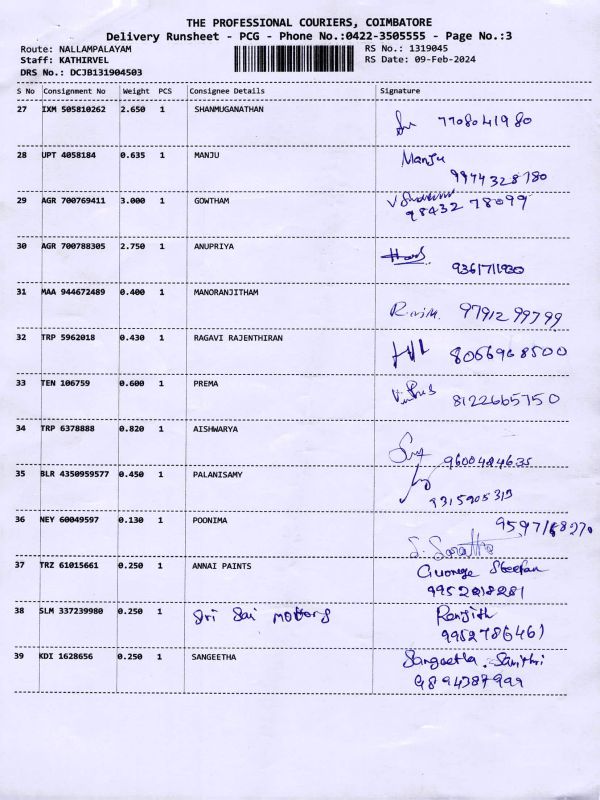 THE PROFESSIONAL COURIERS, COIMBATORE
Delivery Runsheet - PCG - Phone No.:0422-3505555 - Page No.:3
Route: NALLAMPALAYAM RS No.: 1319045
Staff: KATHIRVEL RS Date: 09-Feb-2024
DRS No.: DCJB131904503
S No Consignment No Weight PCS Consignee Details Signature
27 IXM 505810262 2.650 1 SHANMUGANATHAN
7708041980
28 UPT 4058184 0.635 1 MANJU Manju
9974328780
29 AGR 700769411 3.000 1 GOWTHAM
98432 78099
30 AGR 700788305 2.750 1 ANUPRIYA
31 MAA 944672489 0.400 1 MANORANJITHAM
97912 99799
32 TRP 5962018 0.430 1 RAGAVI RAJENTHIRAN
8056968500
33 TEN 106759 0.600 1 PREMA
8122665750
34 TRP 6378888 0.820 1 AISHWARYA
35 BLR 4350959577 0.450 1 PALANISAMY
36 NEY 60049597 0.130 1 POONIMA
37 TRZ 61015661 0.250 1 ANNAI PAINTS
38 SLM 337239980 0.250 1 Sri Sai Motors Ranjith
9952786461
39 KDI 1628656 0.250 1 SANGEETHA Sangeetha
9894387999